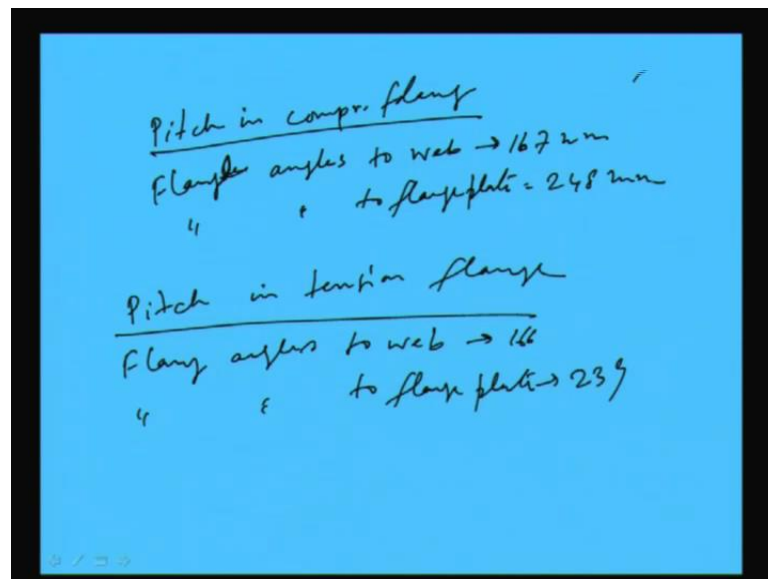 Pitch in compr. flang
Flange angles to web → 167 mm
" " to flange plate = 248 mm
Pitch in tension flange
Flang angles to web → 166
" " to flange plate → 239